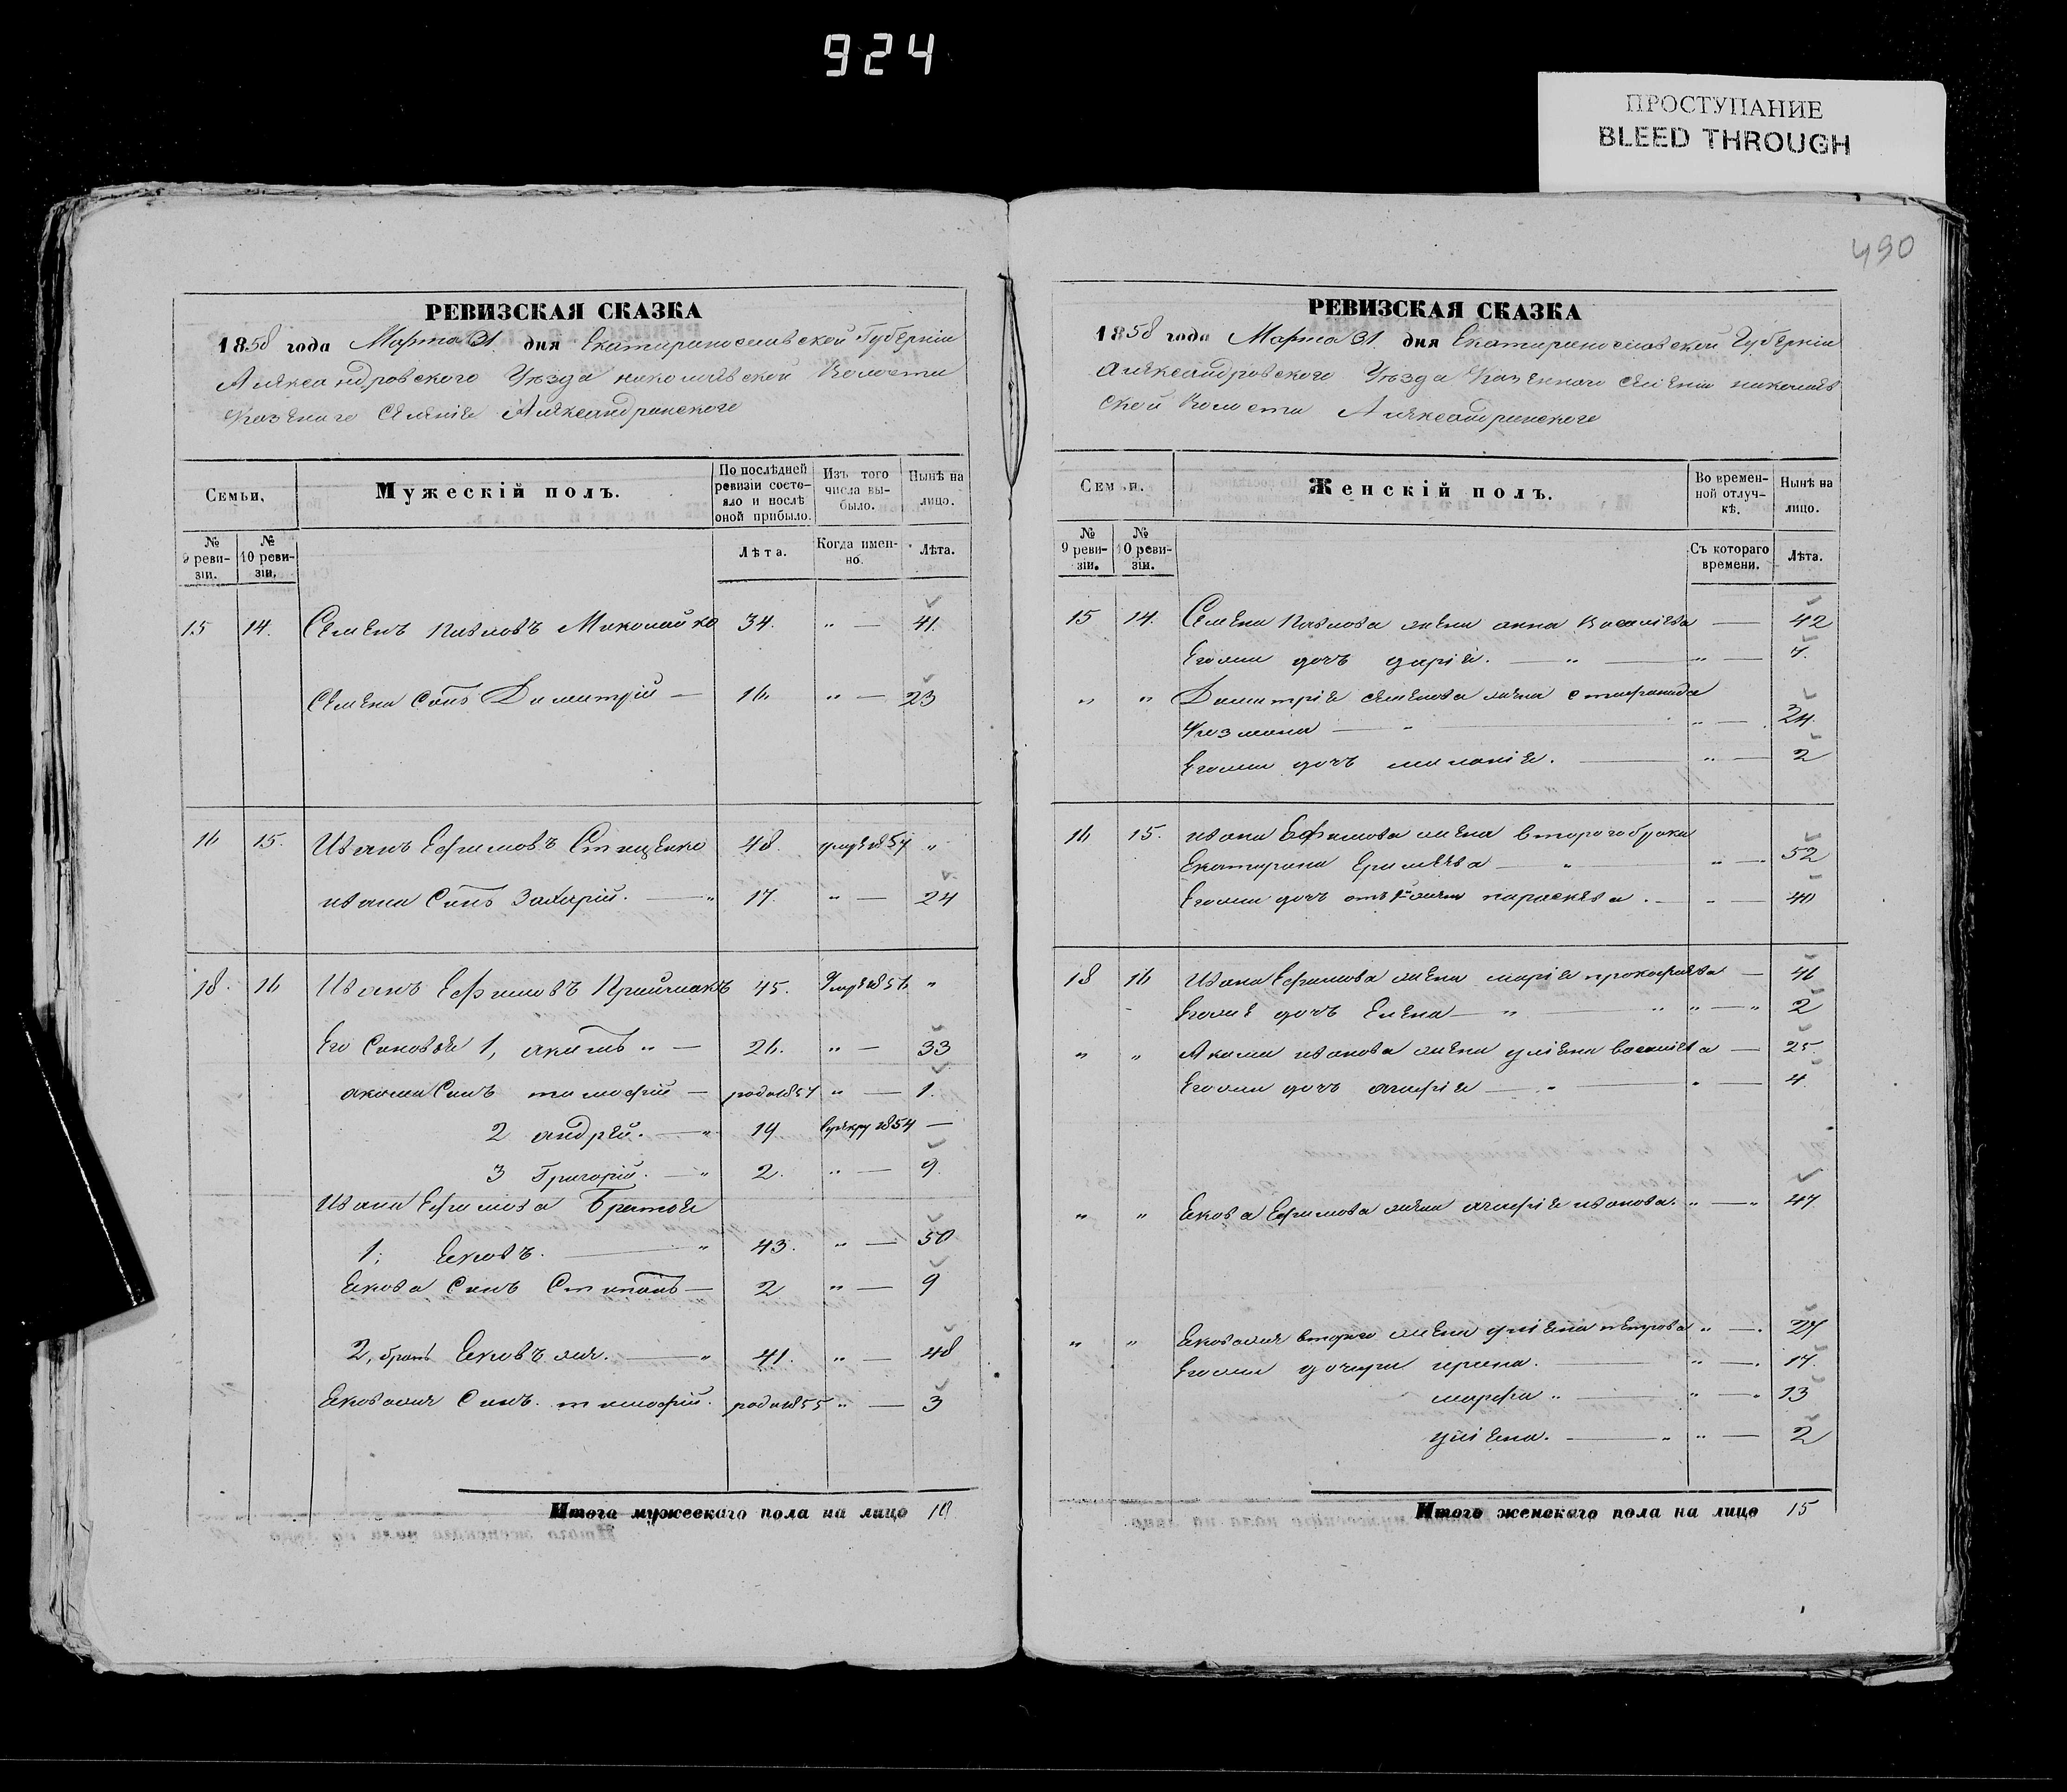 924
ПРОСТУПАНИЕ
BLEED THROUGH
490
РЕВИЗСКАЯ СКАЗКА
1858 года Марта 31. дня Екатиринославской Губерніи
Александровского Уезда николаевской Волости
Казенаго Селенія Александринского
Семьи.
Мужескій полъ.
По послѣдней ревизіи состояло и послѣ оной прибыло.
Изъ того числа выбыло.
Нынѣ на лицо.
№ 9 ревизіи.
№ 10 ревизіи.
Лѣта.
Когда именно.
Лѣта.
15 14. Семенъ павловъ Миколайко 34. " — 41.
Семена Сынъ Димитрій — 16. " — 23
16 15. Иванъ Ефимовъ Стаценко 48. 1857 "
ивана Сынъ Захарій. — " 17. " — 24
18. 16 Иванъ Ефимовъ Приймакъ 45. 1856 "
Его Сыновья 1, акимъ " — 26. " — 33
акима Сынъ тимофій — род 1857 " — 1.
2 андрей. — " 19 1854 —
3 Григорій. — " 2. " — 9.
Ивана Ефимова Братья
1; Яковъ. — " 43. " — 50
Якова Сынъ Степанъ — 2 " — 9
2, братъ Яковъ же. — " 41. " — 48
Якова же Сынъ. тимофій. род 1855 " — 3
Итого мужескаго пола на лицо 10
РЕВИЗСКАЯ СКАЗКА
1858 года Марта 31. дня Екатиринославской Губерніи
Александровского Уезда Казенного селенія николаев
ской Волости Александринского
Семьи.
Женскій полъ.
Во временной отлучкѣ.
Нынѣ на лицо.
№ 9 ревизіи.
№ 10 ревизіи.
Съ котораго времени.
Лѣта.
15 14. Семена Павлова жена анна Василіева — 42
Егожи дочъ дарія. — " — " — 7.
" " Димитрія семенова жена стифанида
Кузмина — " — " — 24.
Егожи дочъ миланія. — " — 2
16 15. ивана Ефимова жена второго брака
Екатирина — " — " — 52
Егожи дочъ отъ 1й жены параскева. — " — 40
18 16 Ивана Ефимова жена марія прокофіева — 46
Егоже дочъ Елена — " — " " — " 2
" " Акима иванова жена уліяна василіева — 25.
Егожи дочъ агафія — " — " — 4
" " Якова Ефимова жена агафія иванова. " — " 47
" " Якова жи второго жена уліяна петрова " — . 27
Егожи дочери ирина. — " — . 17.
марфа " — " — " 13
уліяна. — " " — 2
Итого женскаго пола на лицо 15